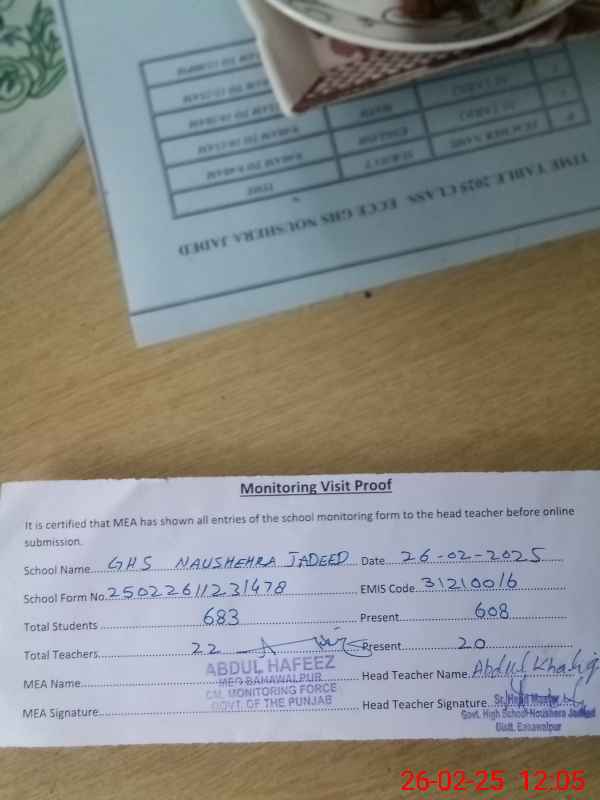 TIME TABLE 2025 CLASS ECCE GHS NOUSHERA JADED
TEACHER NAME SUBJECT TIME
ENGLISH
MATH
Monitoring Visit Proof
It is certified that MEA has shown all entries of the school monitoring form to the head teacher before online
submission.
School Name....GHS NAUSHEHRA JADEED Date....26-02-2025
School Form No.25022611231478 EMIS Code.31210016
Total Students ....683 Present....608
Total Teachers....22 Present....20
MEA Name.... Head Teacher Name.Abdul Khaliq
MEA Signature.... Head Teacher Signature...
ABDUL HAFEEZ
MEO BAHAWALPUR
CM. MONITORING FORCE
GOVT. OF THE PUNJAB
Sr. Head Master
Govt. High School Noushera Jadeed
Distt. Bahawalpur
26-02-25 12:05